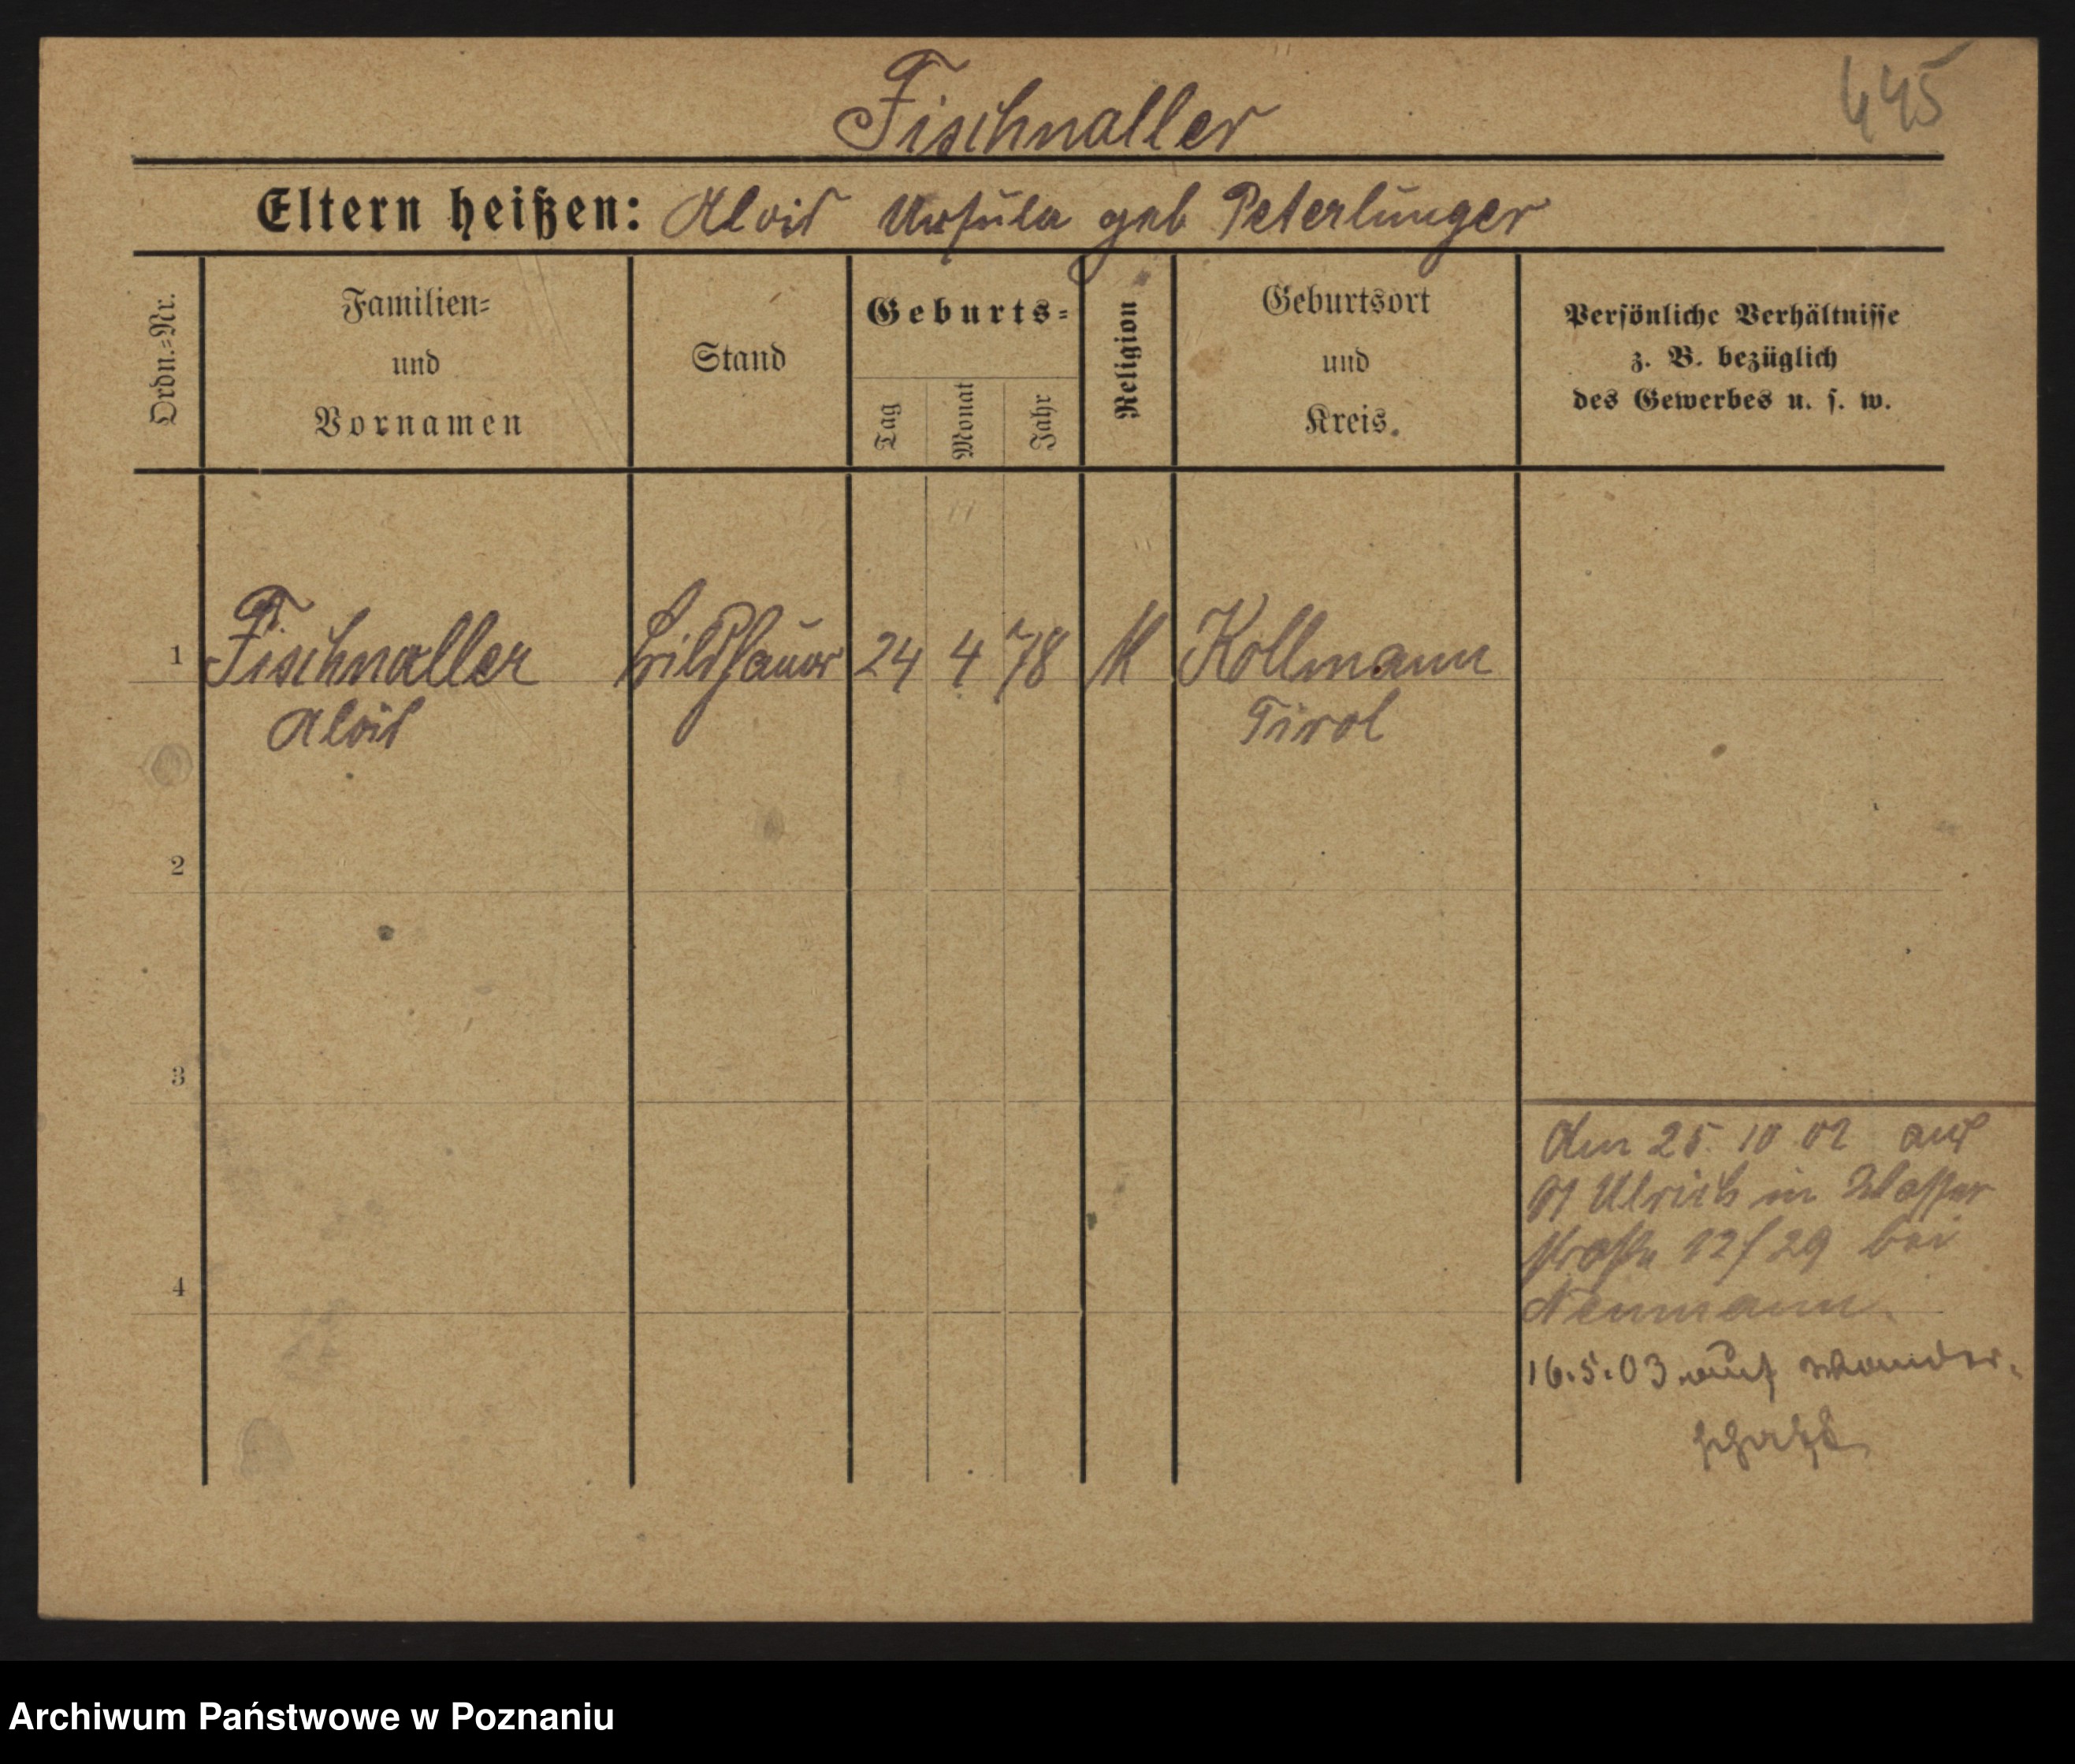 445
Fischnaller
Eltern heißen: Alois Ursula geb Peterlunger
Ordn.-Nr.
Familien-
und
Vornamen
Stand
Geburts-
Tag
Monat
Jahr
Religion
Geburtsort
und
Kreis.
Persönliche Verhältnisse
z. B. bezüglich
des Gewerbes u. s. w.
1 Fischnaller Bildhauer 24 4 78 K Kollmann
Alois Tirol
2
3
den 25. 10 02 aus
St Ulrich in Wasser
straße 12/29 bei
4
Neumann
16.5.03 auf Wander-
schaft
Archiwum Państwowe w Poznaniu